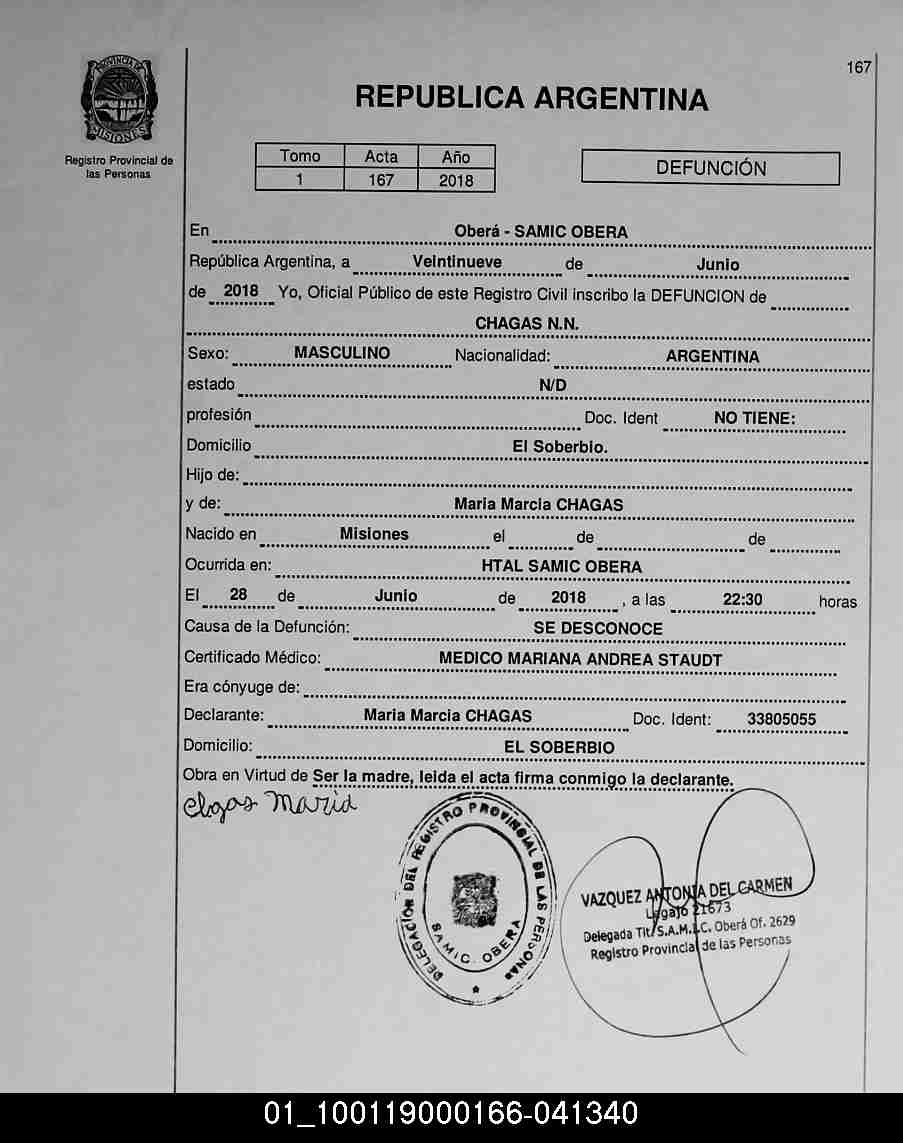 167
PROVINCIA DE
MISIONES
Registro Provincial de
las Personas
REPUBLICA ARGENTINA
Tomo Acta Año
1 167 2018
DEFUNCIÓN
En Oberá - SAMIC OBERA
República Argentina, a Veintinueve de Junio
de 2018 Yo, Oficial Público de este Registro Civil inscribo la DEFUNCION de
CHAGAS N.N.
Sexo: MASCULINO Nacionalidad: ARGENTINA
estado N/D
profesión Doc. Ident NO TIENE:
Domicilio El Soberbio.
Hijo de:
y de: Maria Marcia CHAGAS
Nacido en Misiones el de de
Ocurrida en: HTAL SAMIC OBERA
El 28 de Junio de 2018 , a las 22:30 horas
Causa de la Defunción: SE DESCONOCE
Certificado Médico: MEDICO MARIANA ANDREA STAUDT
Era cónyuge de:
Declarante: Maria Marcia CHAGAS Doc. Ident: 33805055
Domicilio: EL SOBERBIO
Obra en Virtud de Ser la madre, leida el acta firma conmigo la declarante.
Maria
DELEGACIÓN DEL REGISTRO PROVINCIAL DE LAS PERSONAS
SAMIC. OBERA
VAZQUEZ ANTONIA DEL CARMEN
Legajo 21673
Delegada Tit. S.A.M.I.C. Oberá Of. 2629
Registro Provincial de las Personas
01_100119000166-041340